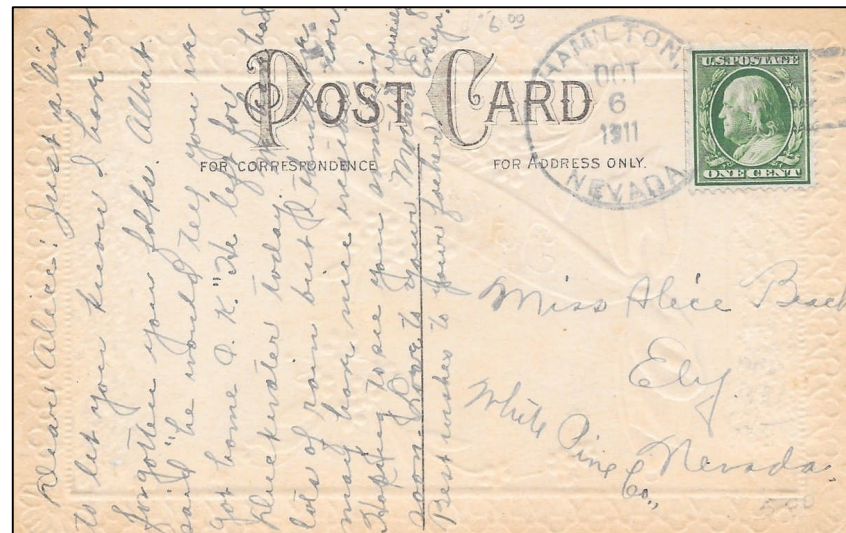 POST CARD
FOR CORRESPONDENCE
FOR ADDRESS ONLY.
HAMILTON,
OCT
6
1911
NEVADA
U.S. POSTAGE
ONE CENT
6 00
Dear Alice: Just a line
to let you know I have not
forgotten you folks. Albert
said "he would tell you we
got home O.K." He left for
Duckwater today. had
lots of rain but I
may have nice
Hoping to see you
soon Love to your Mother
Best wishes to your father
Evelyn.
Miss Alice Beach
Ely.
White Pine Co.,
Nevada.
5 00